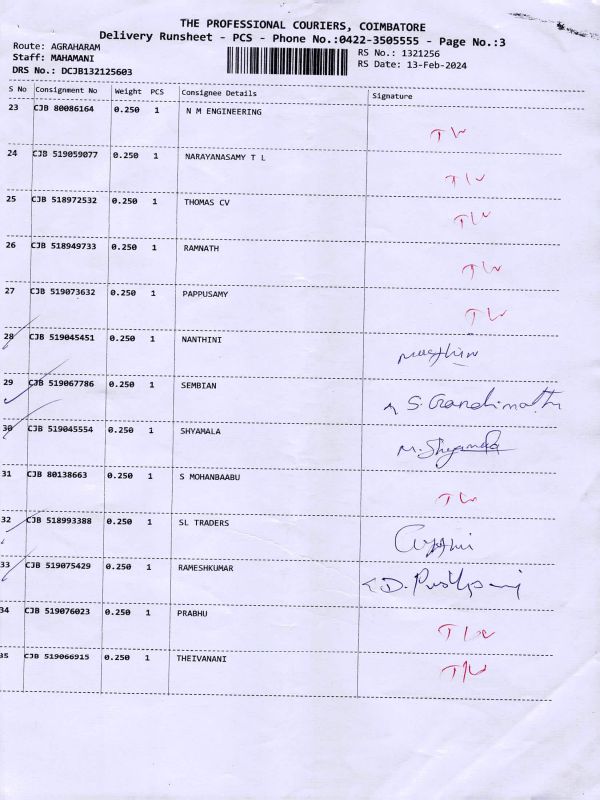 THE PROFESSIONAL COURIERS, COIMBATORE
Delivery Runsheet - PCS - Phone No.:0422-3505555 - Page No.:3
Route: AGRAHARAM
RS No.: 1321256
Staff: MAHAMANI
RS Date: 13-Feb-2024
DRS No.: DCJB132125603
S No Consignment No Weight PCS Consignee Details Signature
23 CJB 80086164 0.250 1 N M ENGINEERING
24 CJB 519059077 0.250 1 NARAYANASAMY T L
25 CJB 518972532 0.250 1 THOMAS CV
26 CJB 518949733 0.250 1 RAMNATH
27 CJB 519073632 0.250 1 PAPPUSAMY
28 CJB 519045451 0.250 1 NANTHINI
29 CJB 519067786 0.250 1 SEMBIAN
30 CJB 519045554 0.250 1 SHYAMALA M. Shyamala
31 CJB 80138663 0.250 1 S MOHANBAABU
32 CJB 518993388 0.250 1 SL TRADERS
33 CJB 519075429 0.250 1 RAMESHKUMAR
34 CJB 519076023 0.250 1 PRABHU
35 CJB 519066915 0.250 1 THEIVANANI